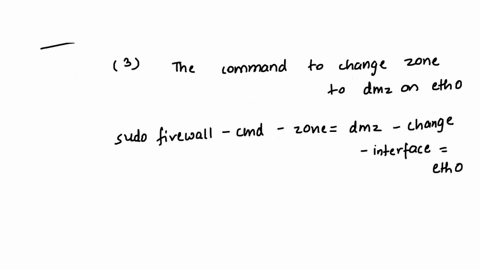 (3) The command to change zone
to dmz on eth0
sudo firewall - cmd - zone = dmz - change
- interface =
eth0